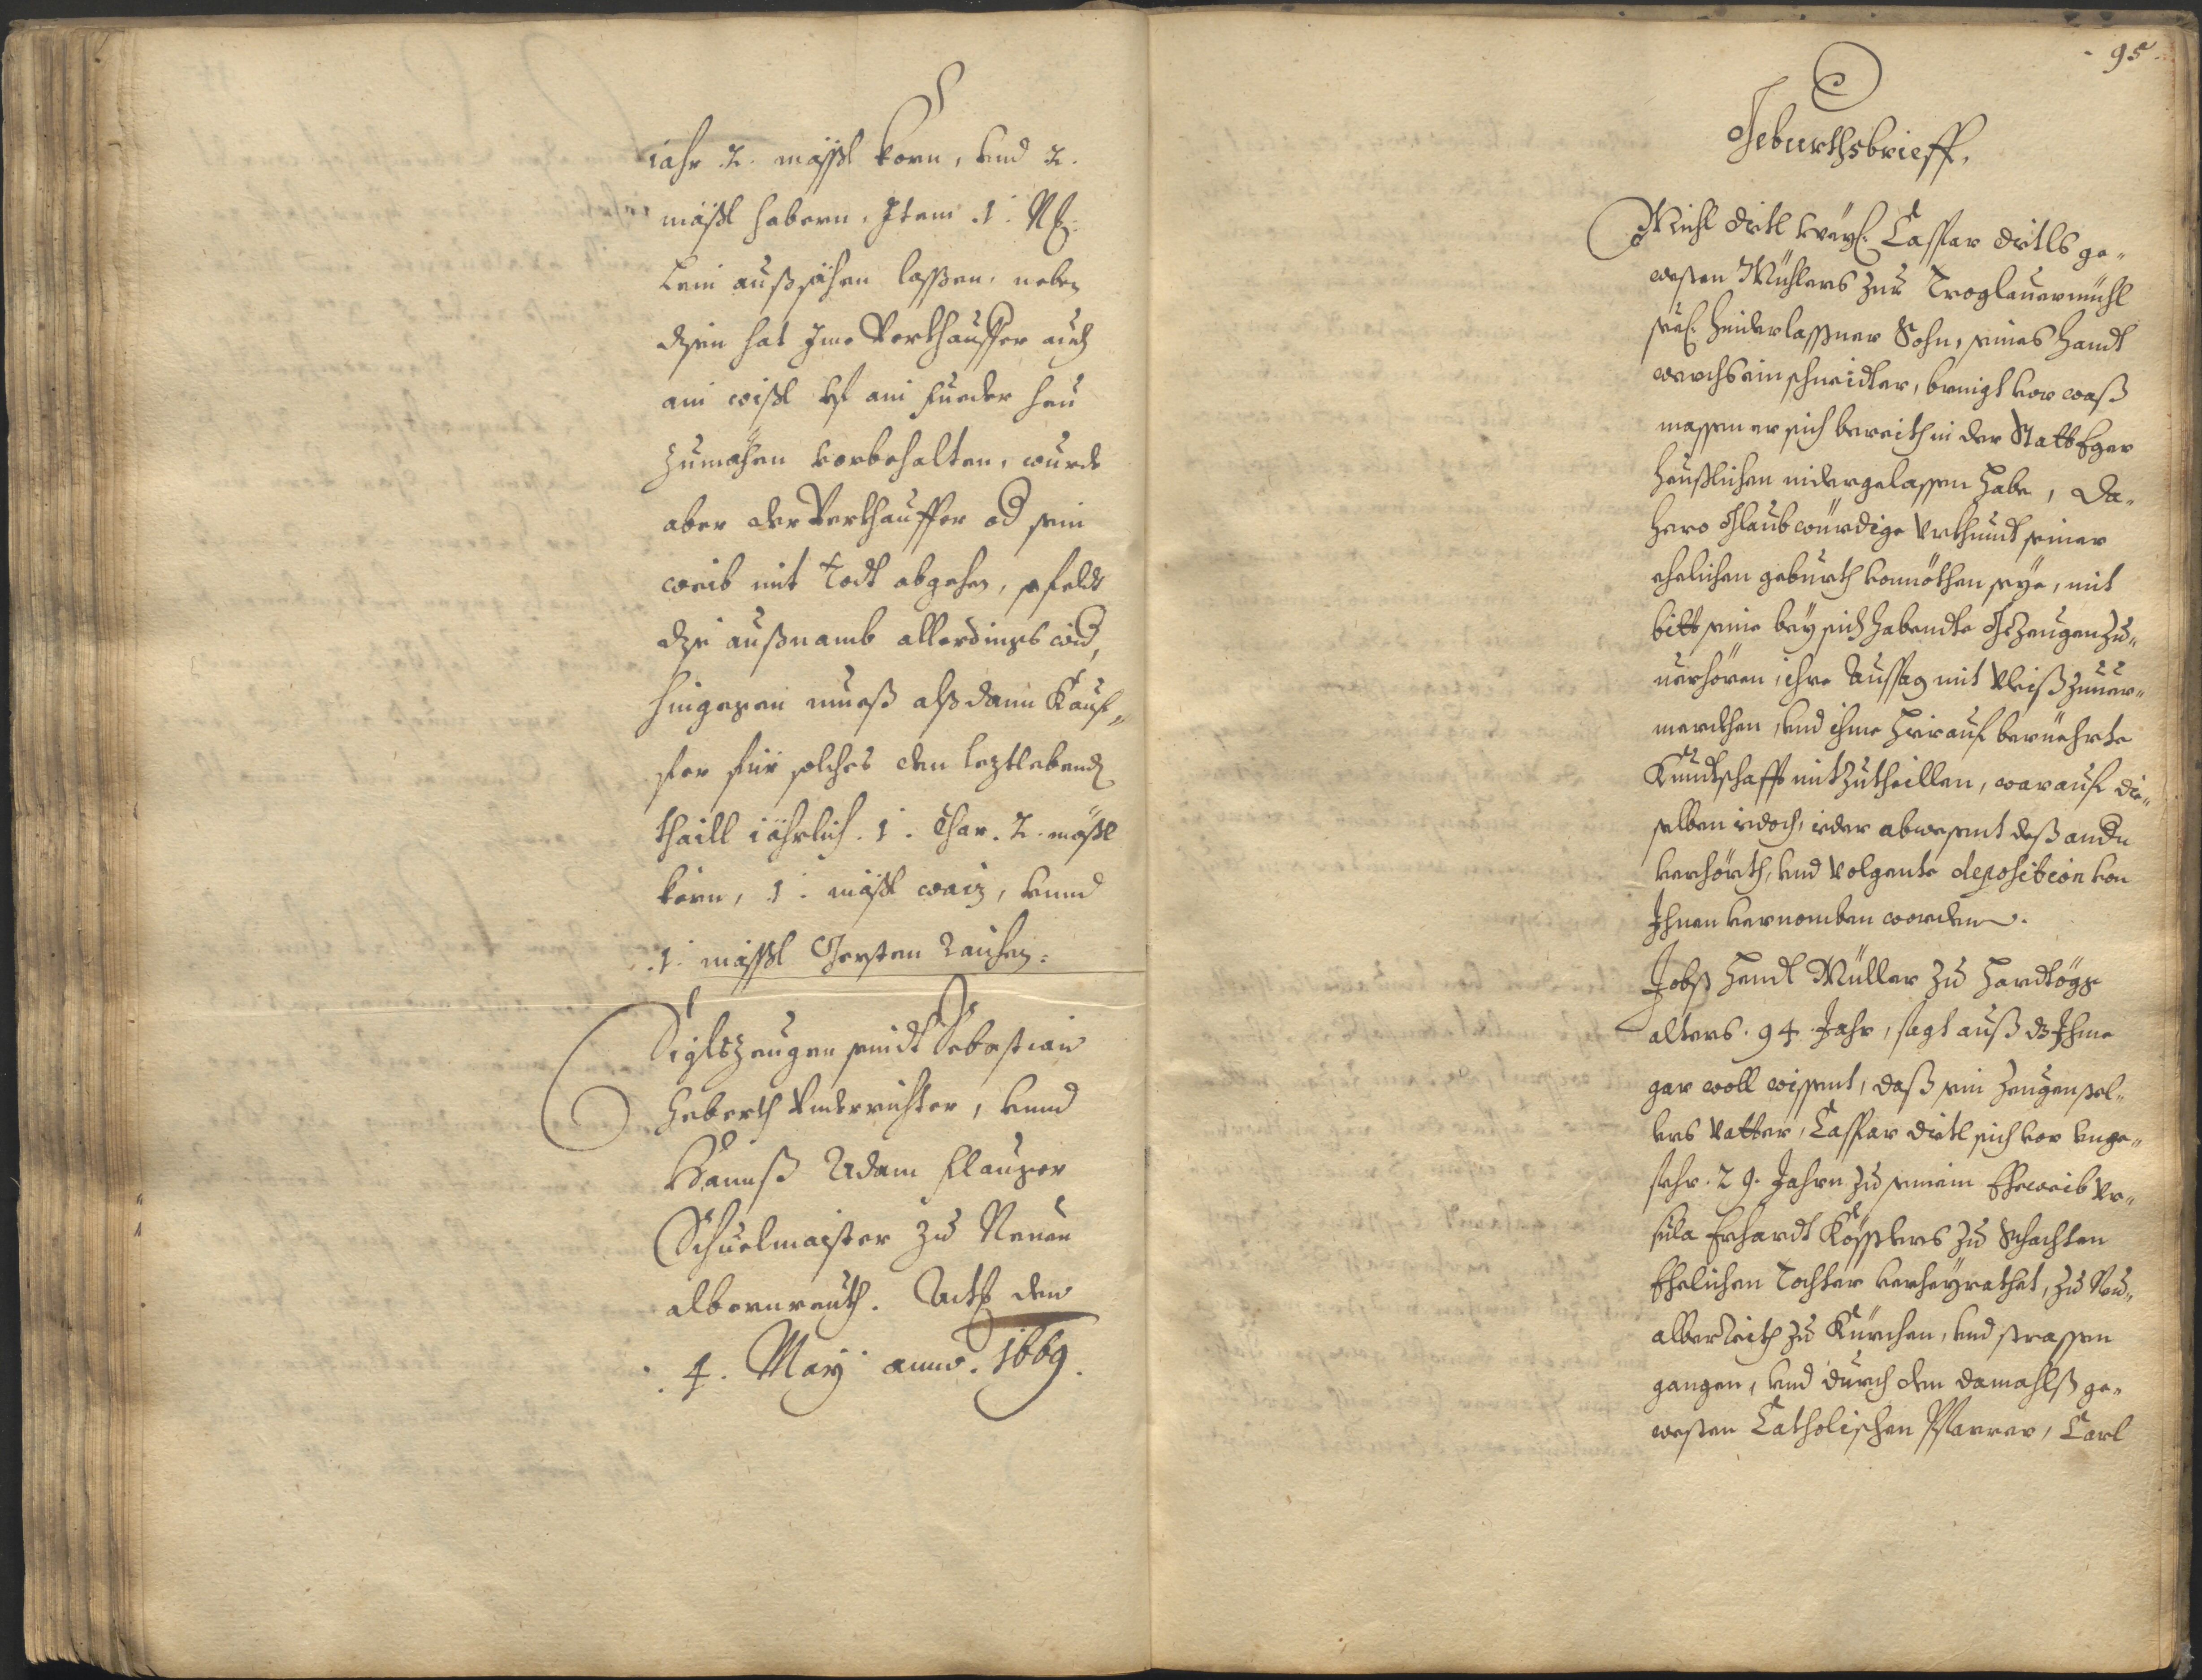 iahr .2. mässl korn, vnd 2.
mässl habern. Item .1. N
Lein außsähen lassen. neben
disen hat Ime Verkhauffer auch
ain wißl vf ain fueder heu
zumähen vorbehalten, wurde
aber der Verkhauffer od sein
weib mit Todt abgehen, so feldt
dise außnamb allerdings wid,
hingegen mueß alß dann Kauf„
fer für solches den leztlebend
thaill iährlich .1. Char. 2. mässl
korn, .1. mässl waiz, vnnd
.1. mässl Gersten raichen.
Siglszeugen seindt Sebastian
Heberth Vnderrichter, vnnd
Hannß Adam Flauger
Schuelmaister zu Neuen
albernreuth. Act den
.4. May anno. 1669.
95
Geburthsbrieff.
Michl Dietl weyl. Casspar Dietls ge„
westen Mühlers zur Troglauermühl
seel. hinderlassner Sohn, seines Handt
werchs ein schneidter, bringt vor waß
massen er sich bereith in der Statt Eger
heußlichen nidergelassen habe, Da„
hero Glaubwürdige Vrkhundt seiner
ehelichen geburth vonnöthen seye, mit
bitt seine bey sich habendte Gezeugen zu„
uerhören, ihre Aussag mit Vleiß zuuer„
merckhen, vnd ihme hierauf beruehrte
Kundtschafft mitzutheillen, warauf die„
selben iedoch, ieder abwesent deß andn
verhörth, vnd Volgente deposition von
Ihnen vernomben worden.
Jobst Hendl Müller zu Hardtögg
alters .94. Jahr, sagt auß dz Ihme
gar woll wissent, daß sein Zeugensel„
bers Vatter, Casspar Dietl sich vor vnge„
fehr .29. Jahrn zu seinem Eheweib Vr„
sula Erhardt Kösslers zu Schachten
Ehelichen Tochter verheyrathet, zu Neu„
alberreith zu Kürchen, vnd strassen
gangen, vnd durch den damahlß ge„
westen Catholischen Pfarrer, Carl